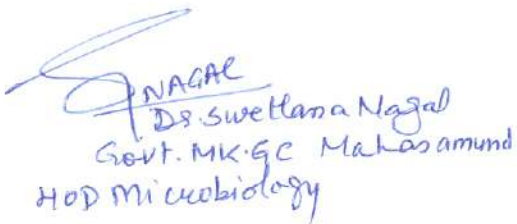 NAGAL
Dr. Swetlana Nagal
Govt. MK.GC Mahasamund
HOD Microbiology